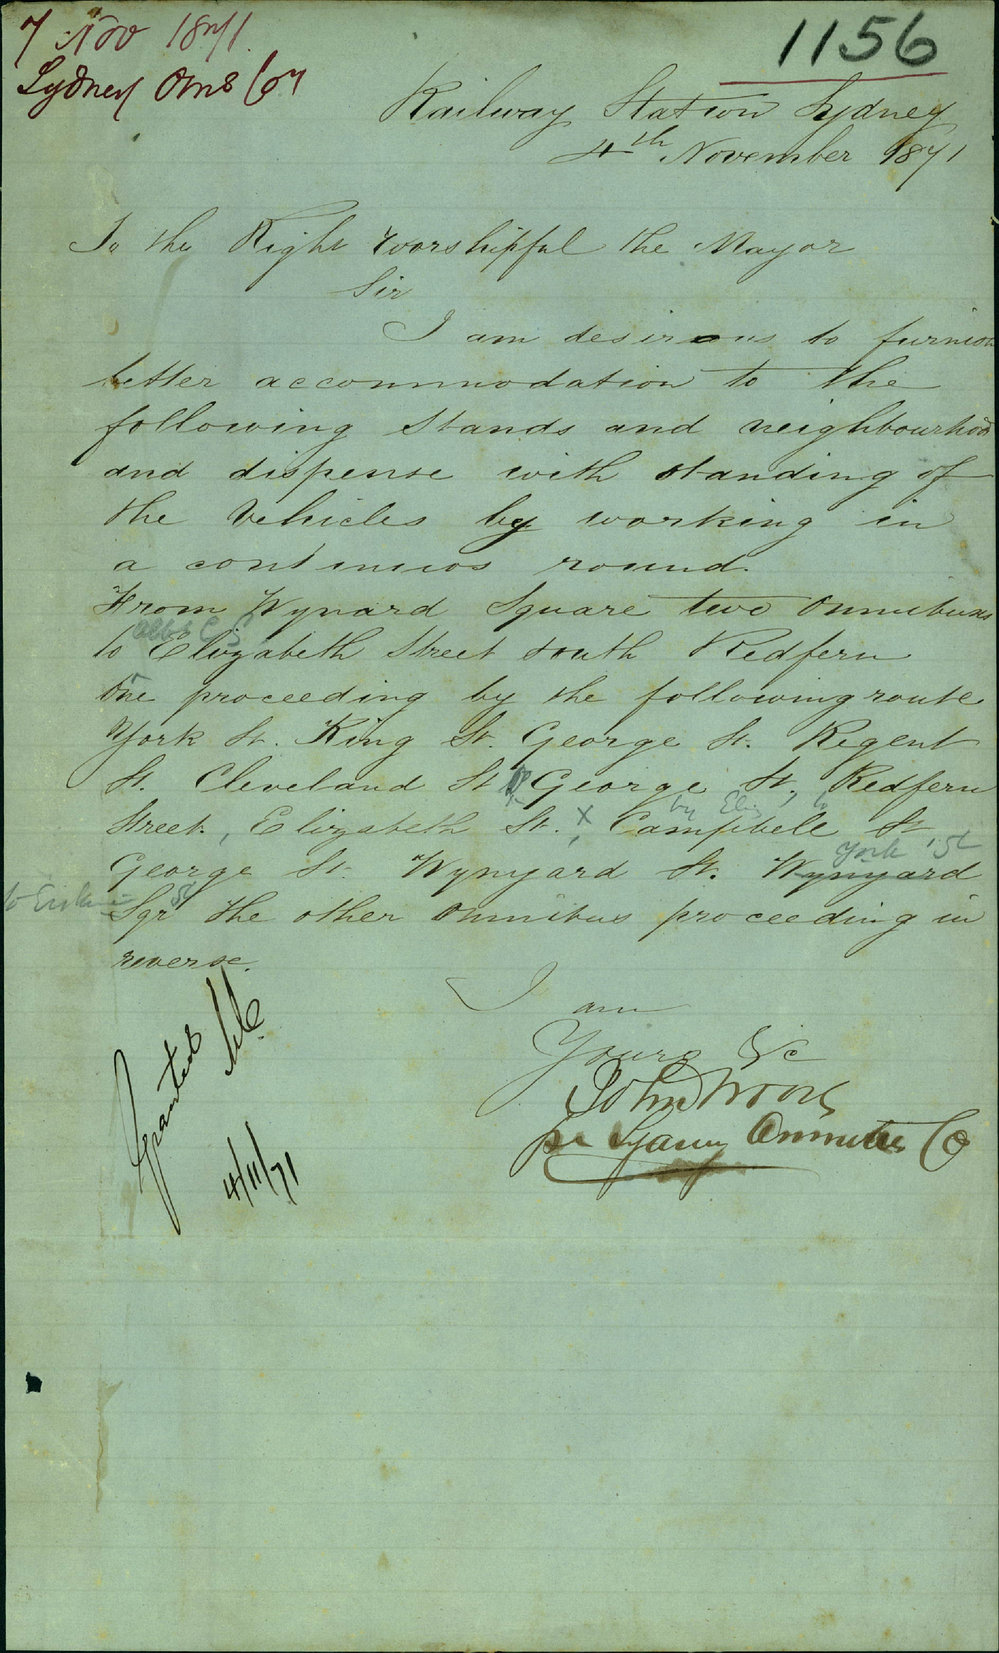 7 Nov 1871
Sydney Omb Coy
1156
Railway Station Sydney
4th November 1871
To the Right Worshipful the Mayor
Sir
I am desirous to furnish
better accommodation to the
following Stands and neighbourhood
and dispense with standing of
the Vehicles by working in
a continuos round.
From Wynard Square two Omnibuses
to Elizabeth Street South Redfern
One proceeding by the following route
York St. King St. George St. Regent
St. Cleveland St George St, Redfern
by Eliz to
Street, Elizabeth St. X Campbell St
York St
George St. Wynyard St. Wynyard
Sqr the other Omnibus proceeding in
reverse.
I am
Yours &c
John Woods
per Sydney Omnibus Co
Granted
4/11/71